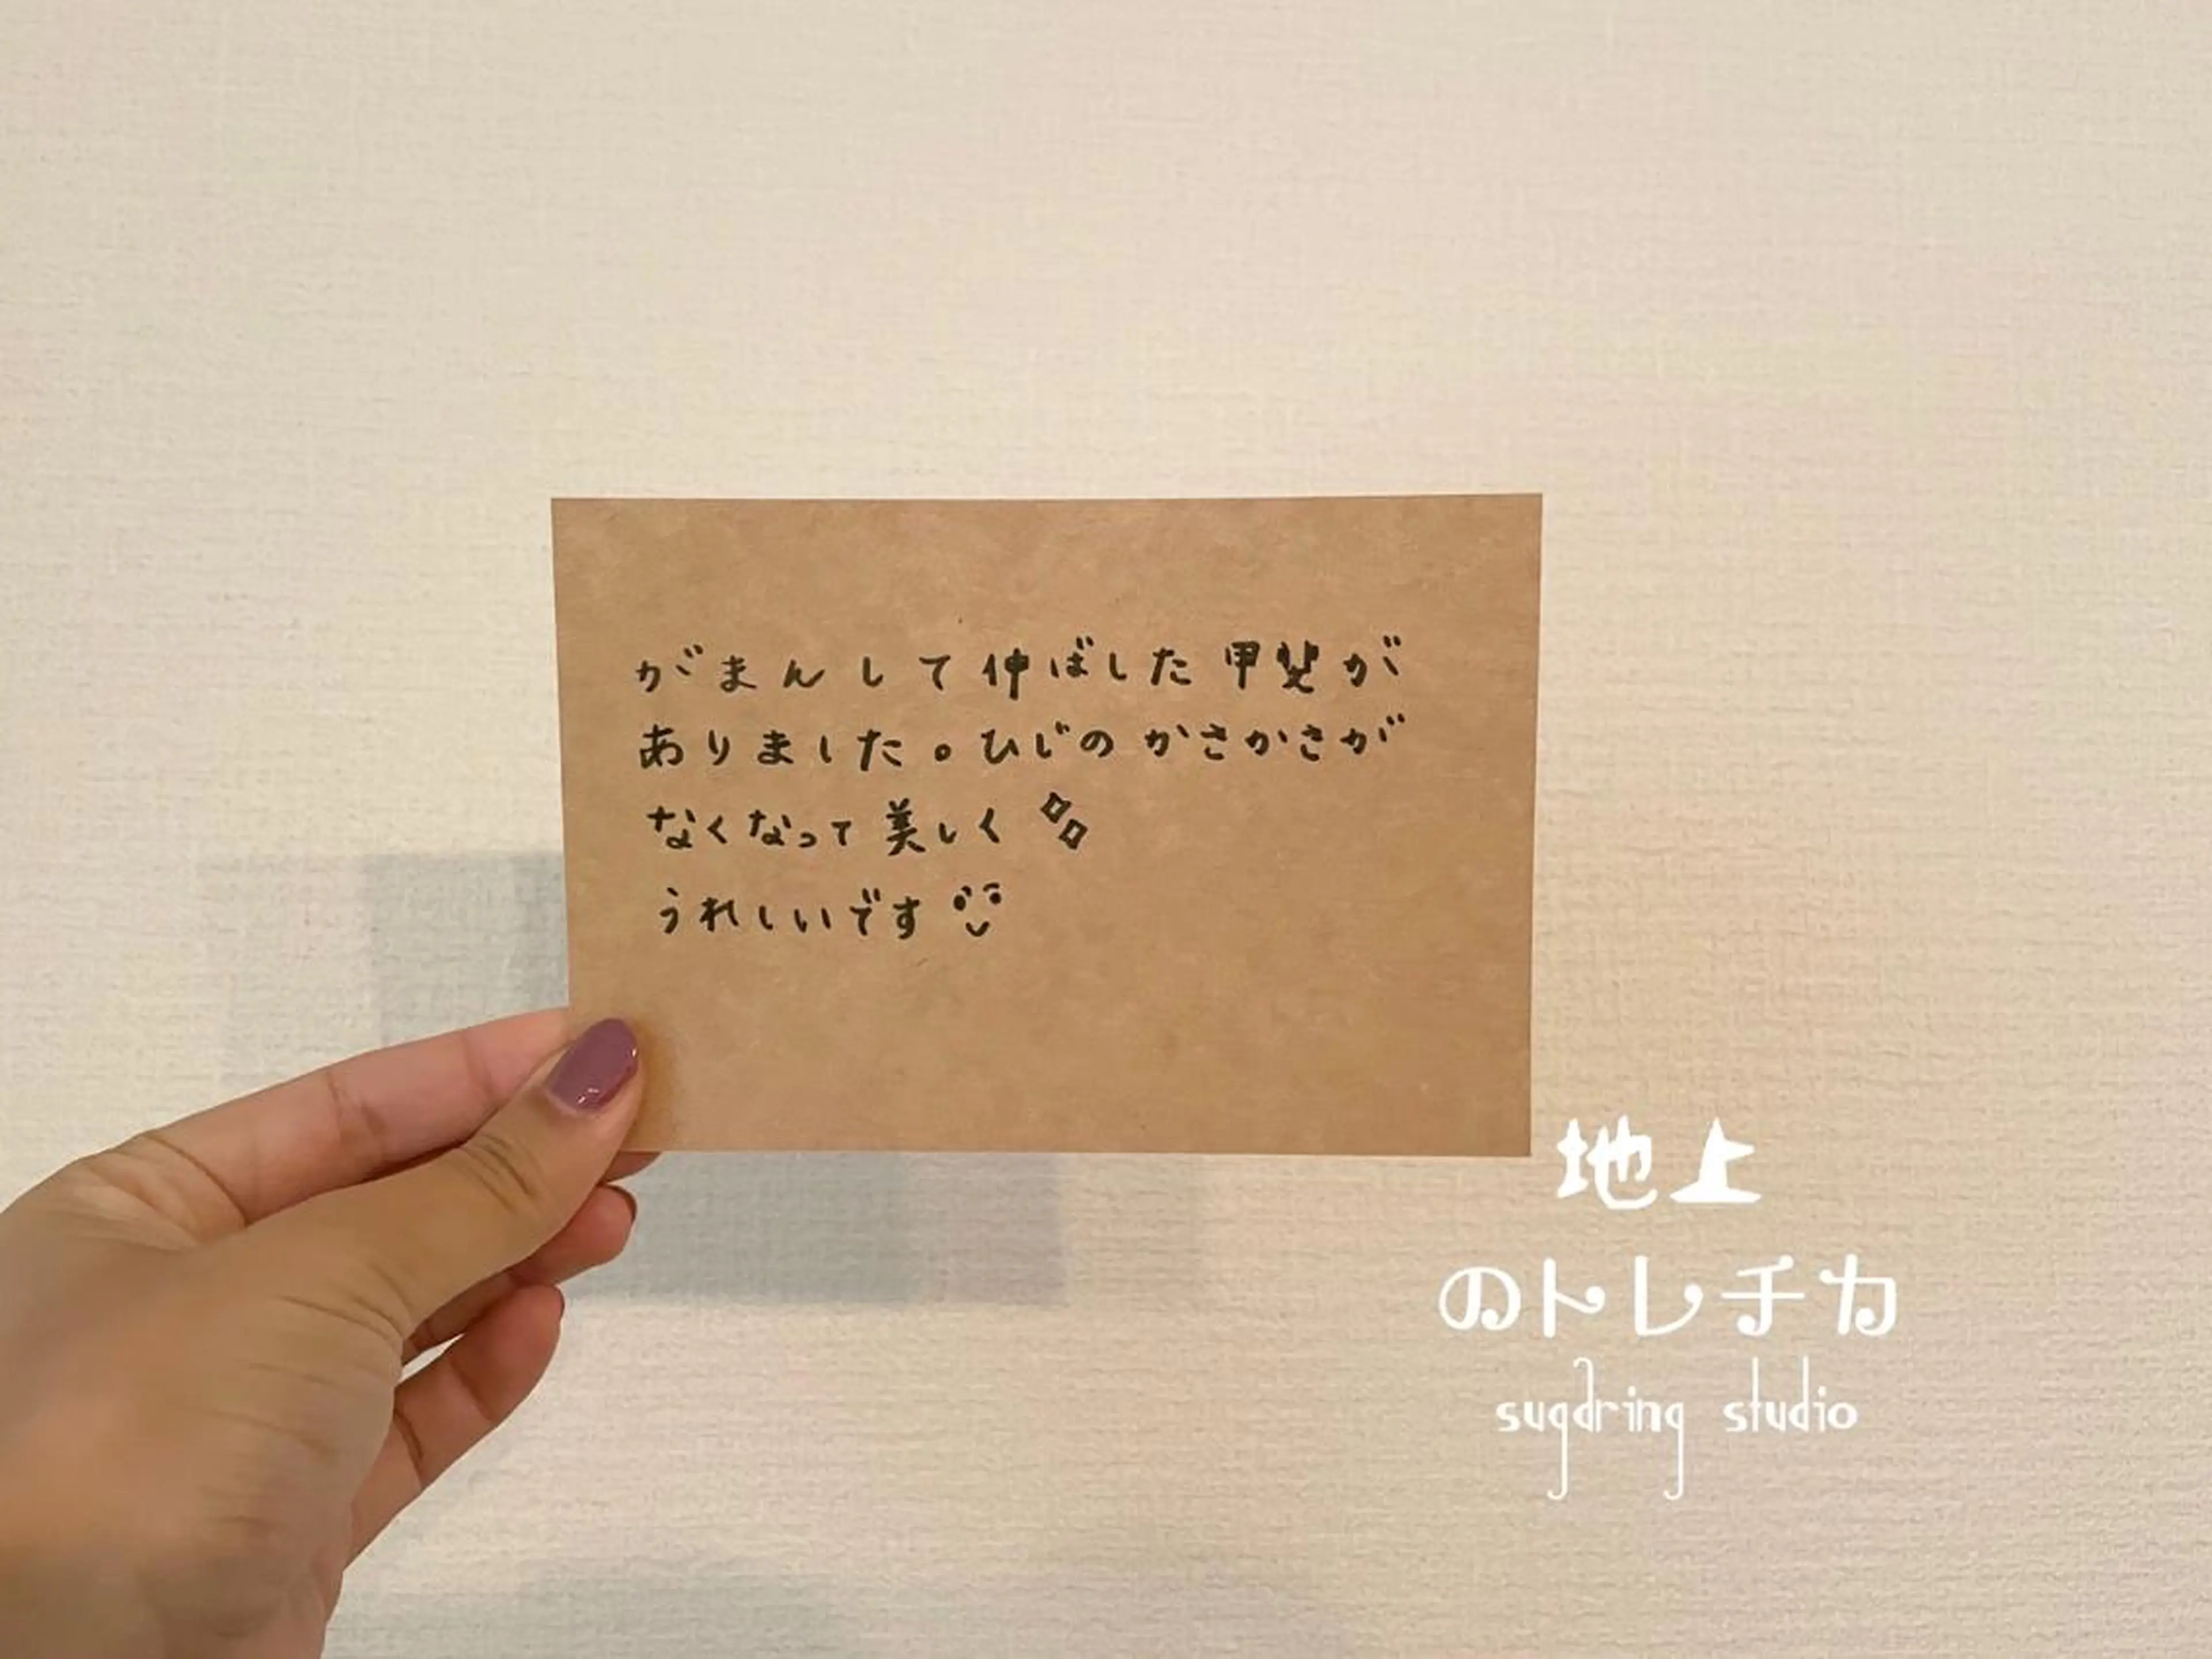 がまんして伸ばした甲斐が
ありました。ひじのかさかさが
なくなって美しく
うれしいです
地上
のトレチカ
sugaring studio